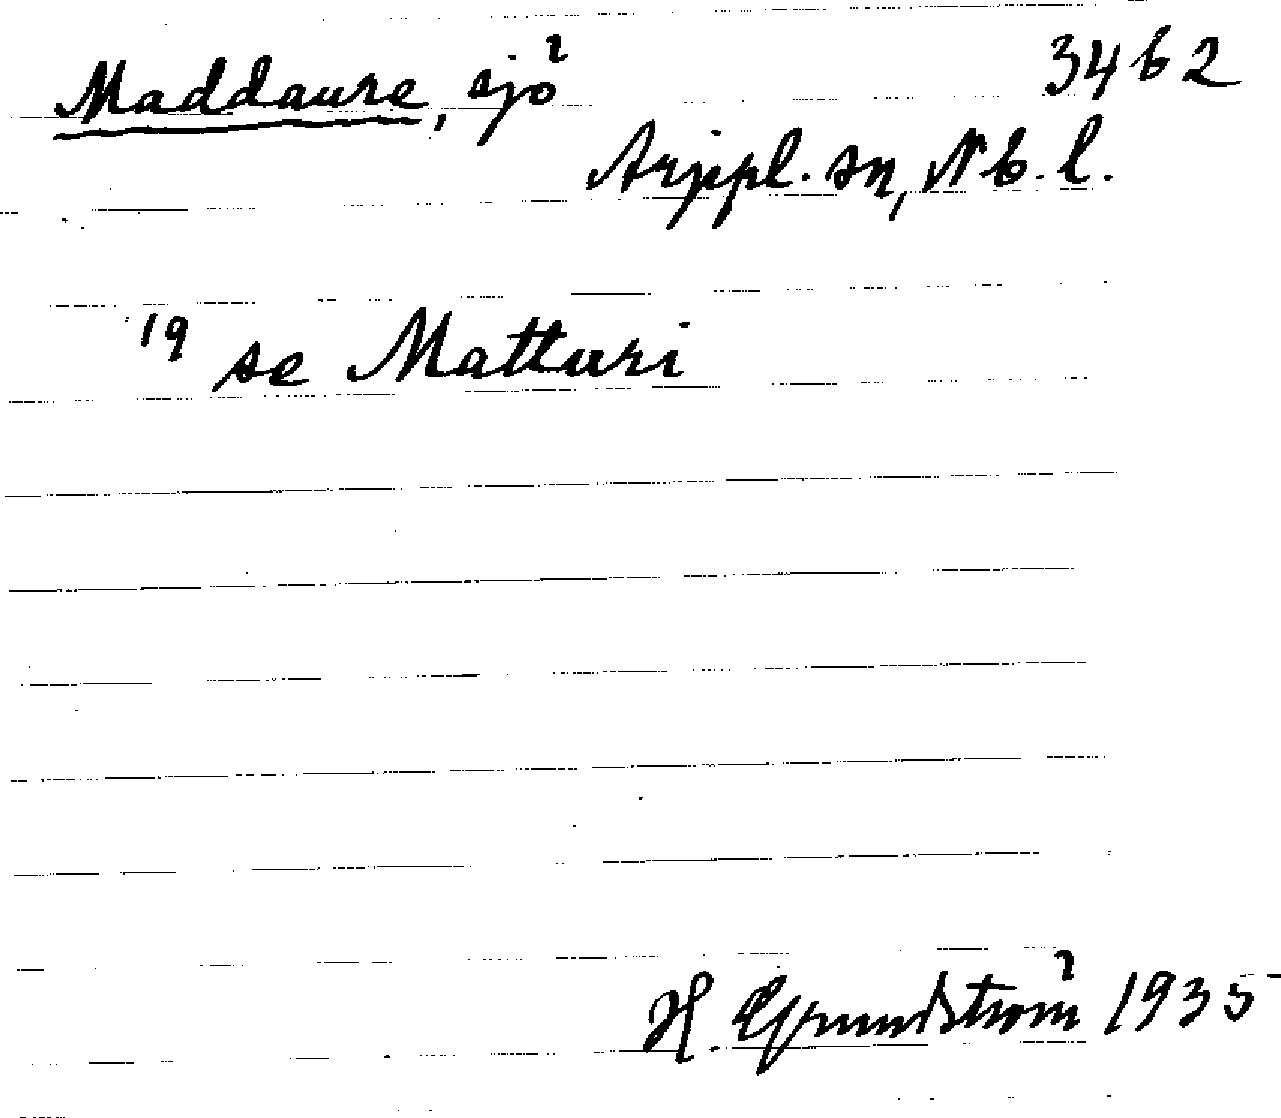 Maddaure, sjö 3462
Arjepl. sn, Nb. l.
19 se Matturi
H. Grundström 1935